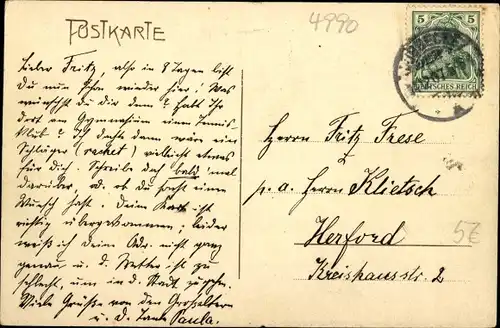 POSTKARTE
4990
5 5
DEUTSCHES REICH
Lieber Fritz, also in 8 Tagen bist
Du nun schon wieder hier! Was
wünschst du dir denn? Habt Ihr
dort am Gymnasium einen Tennis-
klub? Ich dachte dann wäre ein
Schläger (racket) vielleicht etwas
für dich. Schreibe doch bald 'mal
darüber, od. ob du sonst einen
Wunsch hast. Deine Karte ist
richtig übergekommen; leider
weiß ich Deine Adr. nicht ganz
genau u. d. Wetter ist zu
schlecht, um in d. Stadt zu gehen.
Viele Grüße von den Großeltern
u. d. Tante Paula.
Herrn Fritz Frese
p. a. Herrn Klietsch
Herford
Kreishausstr. 2
5E